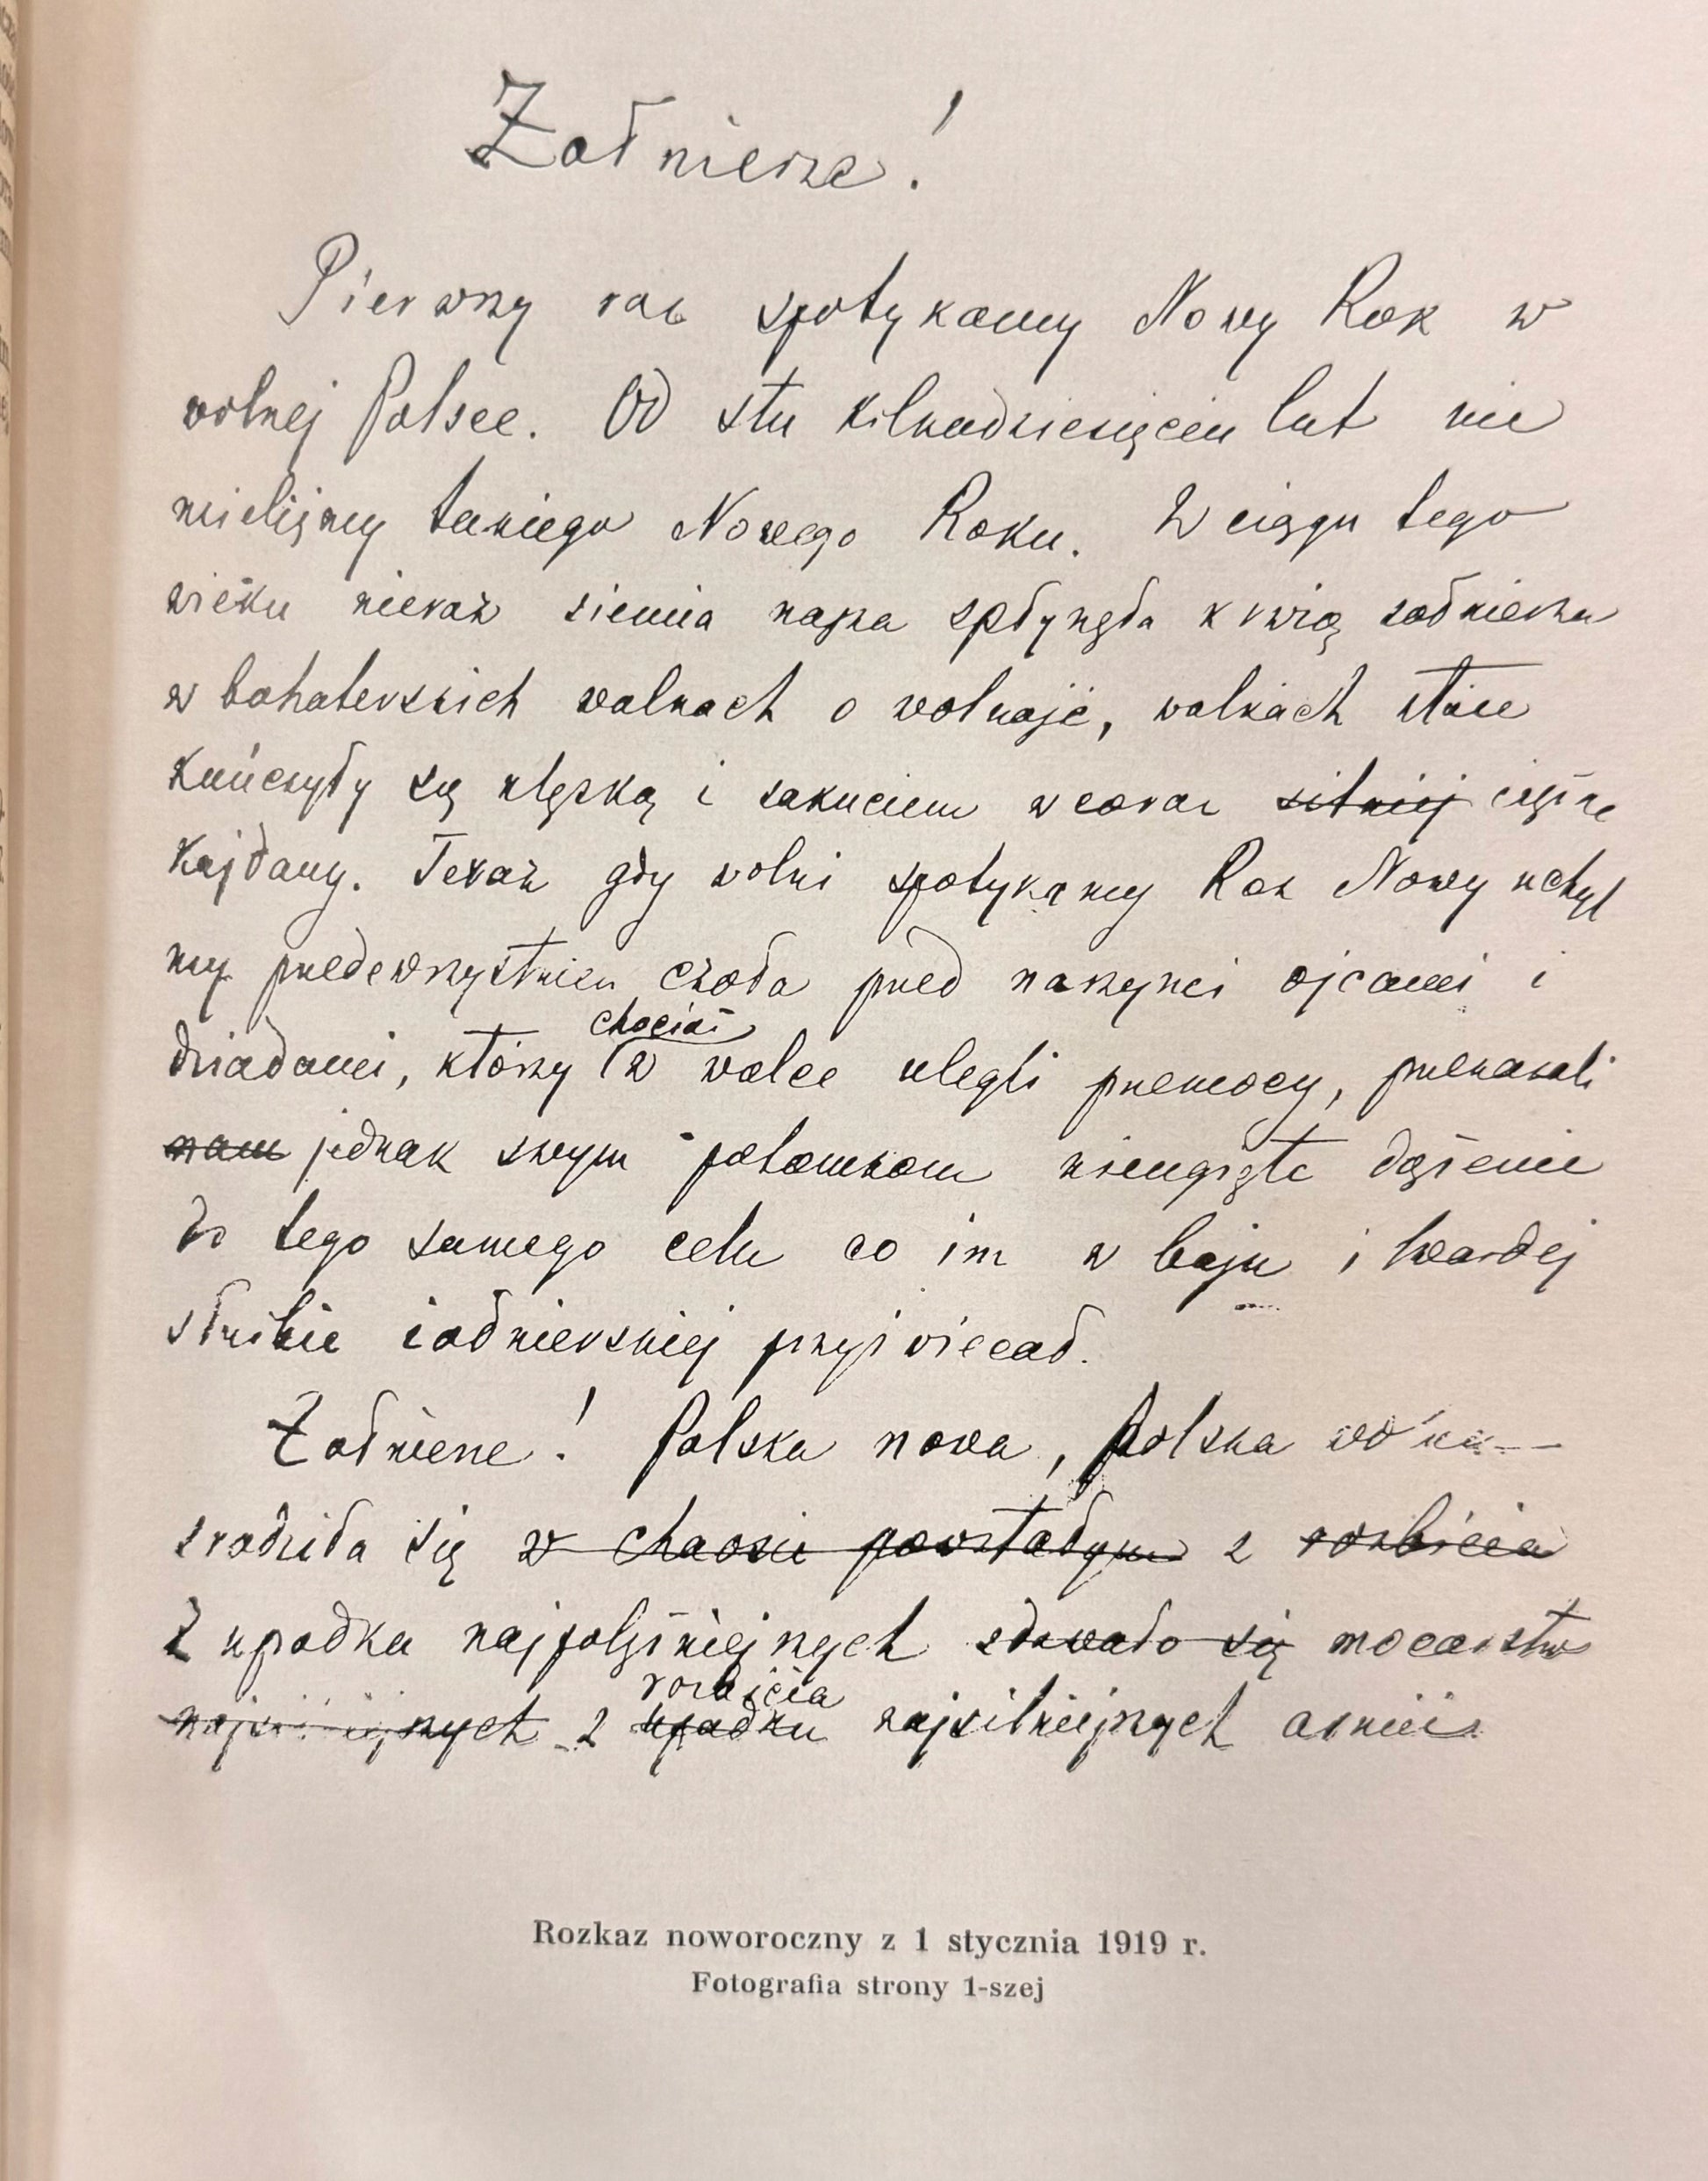 Żołnierze!
Pierwszy raz spotykamy Nowy Rok w
wolnej Polsce. Od stu kilkudziesięciu lat nie
mieliśmy takiego Nowego Roku. W ciągu tego
wieku nieraz ziemia nasza spłynęła krwią żołnierza
w bohaterskich walkach o wolność, walkach
kończyły się klęską i zakuciem w coraz silniej cięższe
kajdany. Teraz gdy wolni spotykamy Rok Nowy uchyl
my przedewszystkiem czoła przed naszymi ojcami i
chociaż
dziadami, którzy w walce ulegli przemocy, przekazali
nam jednak swym potomkom niezgięte dążenie
do tego samego celu co im w boju i twardej
służbie żołnierskiej przyświecał.
Żołnierze! Polska nowa, Polska
zrodziła się w chaosie powstałym z rozbicia
z upadku najpotężniejszych zdawało się mocarstw
rozbicia
najsilniejszych z upadku najsilniejszych armii
Rozkaz noworoczny z 1 stycznia 1919 r.
Fotografia strony 1-szej